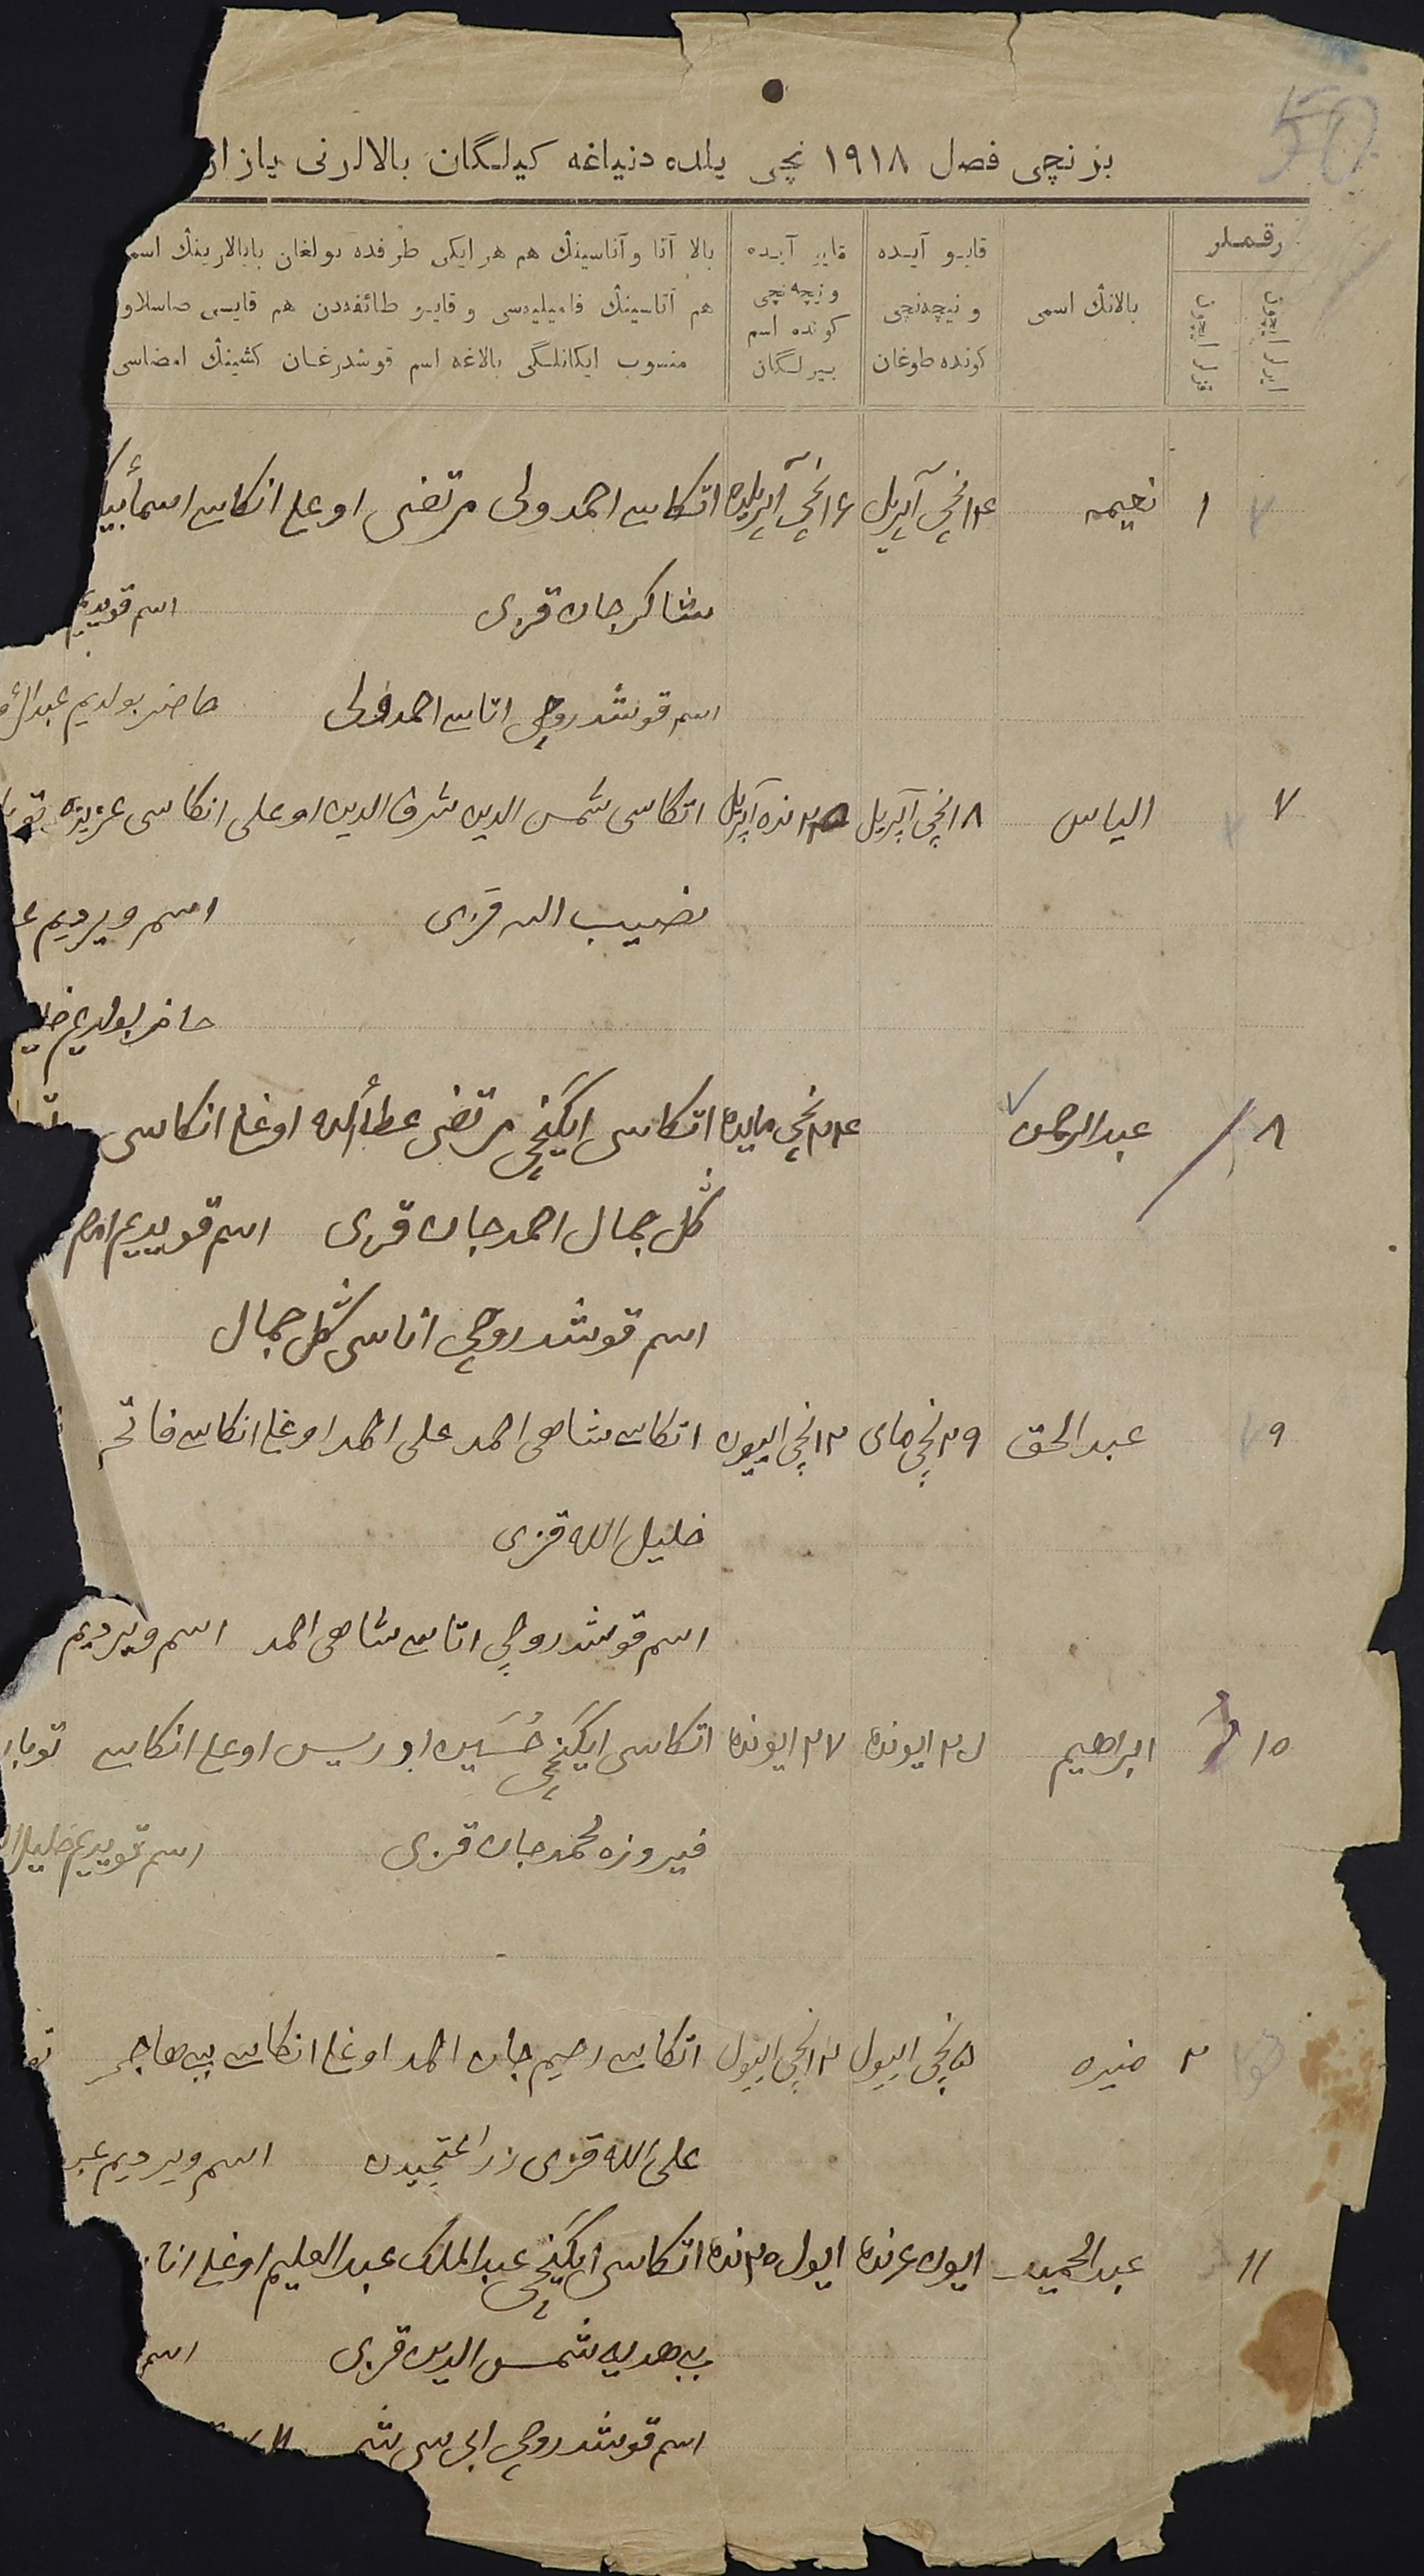 50
برنچی فصل ١٩١٨ نچی یلده دنیاغه کیلگان بالالرنی یازار
رقملر
ایرلر ایچون
قزلر ایچون
بالانڭ اسمی
قایو آیده ونیچەنچی کونده طوغان
قایو آیده ونیچەنچی کونده اسم بیرلگان
بالا آتا وآناسینڭ هم هر ایکی طرفده بولغان بابالارینڭ اسم
هم آتاسینڭ فامیلیەسی وقایو طائفەدن هم قایسی صاسلاو
منسوب ایکانلگی بالاغه اسم قوشدرغان کشینڭ امضاسی
١ نعیمه ١٤نچی آپریل ١٦نچی آپریلده اتکاسی احمدولی مرتضی اوغلی انکاسی اسمأبیکە
شاکرجان قزی اسم قویدیم
اسم قوشدروچی اتاسی احمدولی حاضر بولدیم عبدالرؤ
٧ الیاس ١٨نچی آپریل ٢٥نده آپریل اتکاسی شمس الدین شرف الدین اوغلی انکاسی عزیزه
نصیب الله قزی اسم ویردیم
حاضر بولدیم
٨ عبدالرحمن ٢٤نچی مایده اتکاسی ایکنچی مرتضی عطأالله اوغلی انکاسی
گل جمال احمدجان قزی اسم قویدیم امام
اسم قوشدروچی اناسی گل جمال
٩ عبدالحق ٢٩نچی مای ١٢نچی اییون اتکاسی شاهی احمد علی احمد اوغلی انکاسی فاتحه
خلیل الله قزی
اسم قوشدروچی اتاسی شاهی احمد اسم ویردیم
١٠ ابراهیم ٢٠ ایونده ٢٧ ایونده اتکاسی ایکنچی حُسَین ادریس اوغلی انکاسی
فیروزه محمدجان قزی اسم قویدیم خلیل
٢ منیره ٥نچی اییول ١٢نچی اییول اتکاسی رحیم جان احمد اوغلی انکاسی بی بی هاجر
علی الله قزی اسم ویردیم
١١ عبدالحمید ایون ٤نده ایول ٢٥نده اتکاسی ایکنچی عبدالملک عبدالعلیم اوغلی
بی بی هدیه شمس الدین قزی اسم
اسم قوشدروچی